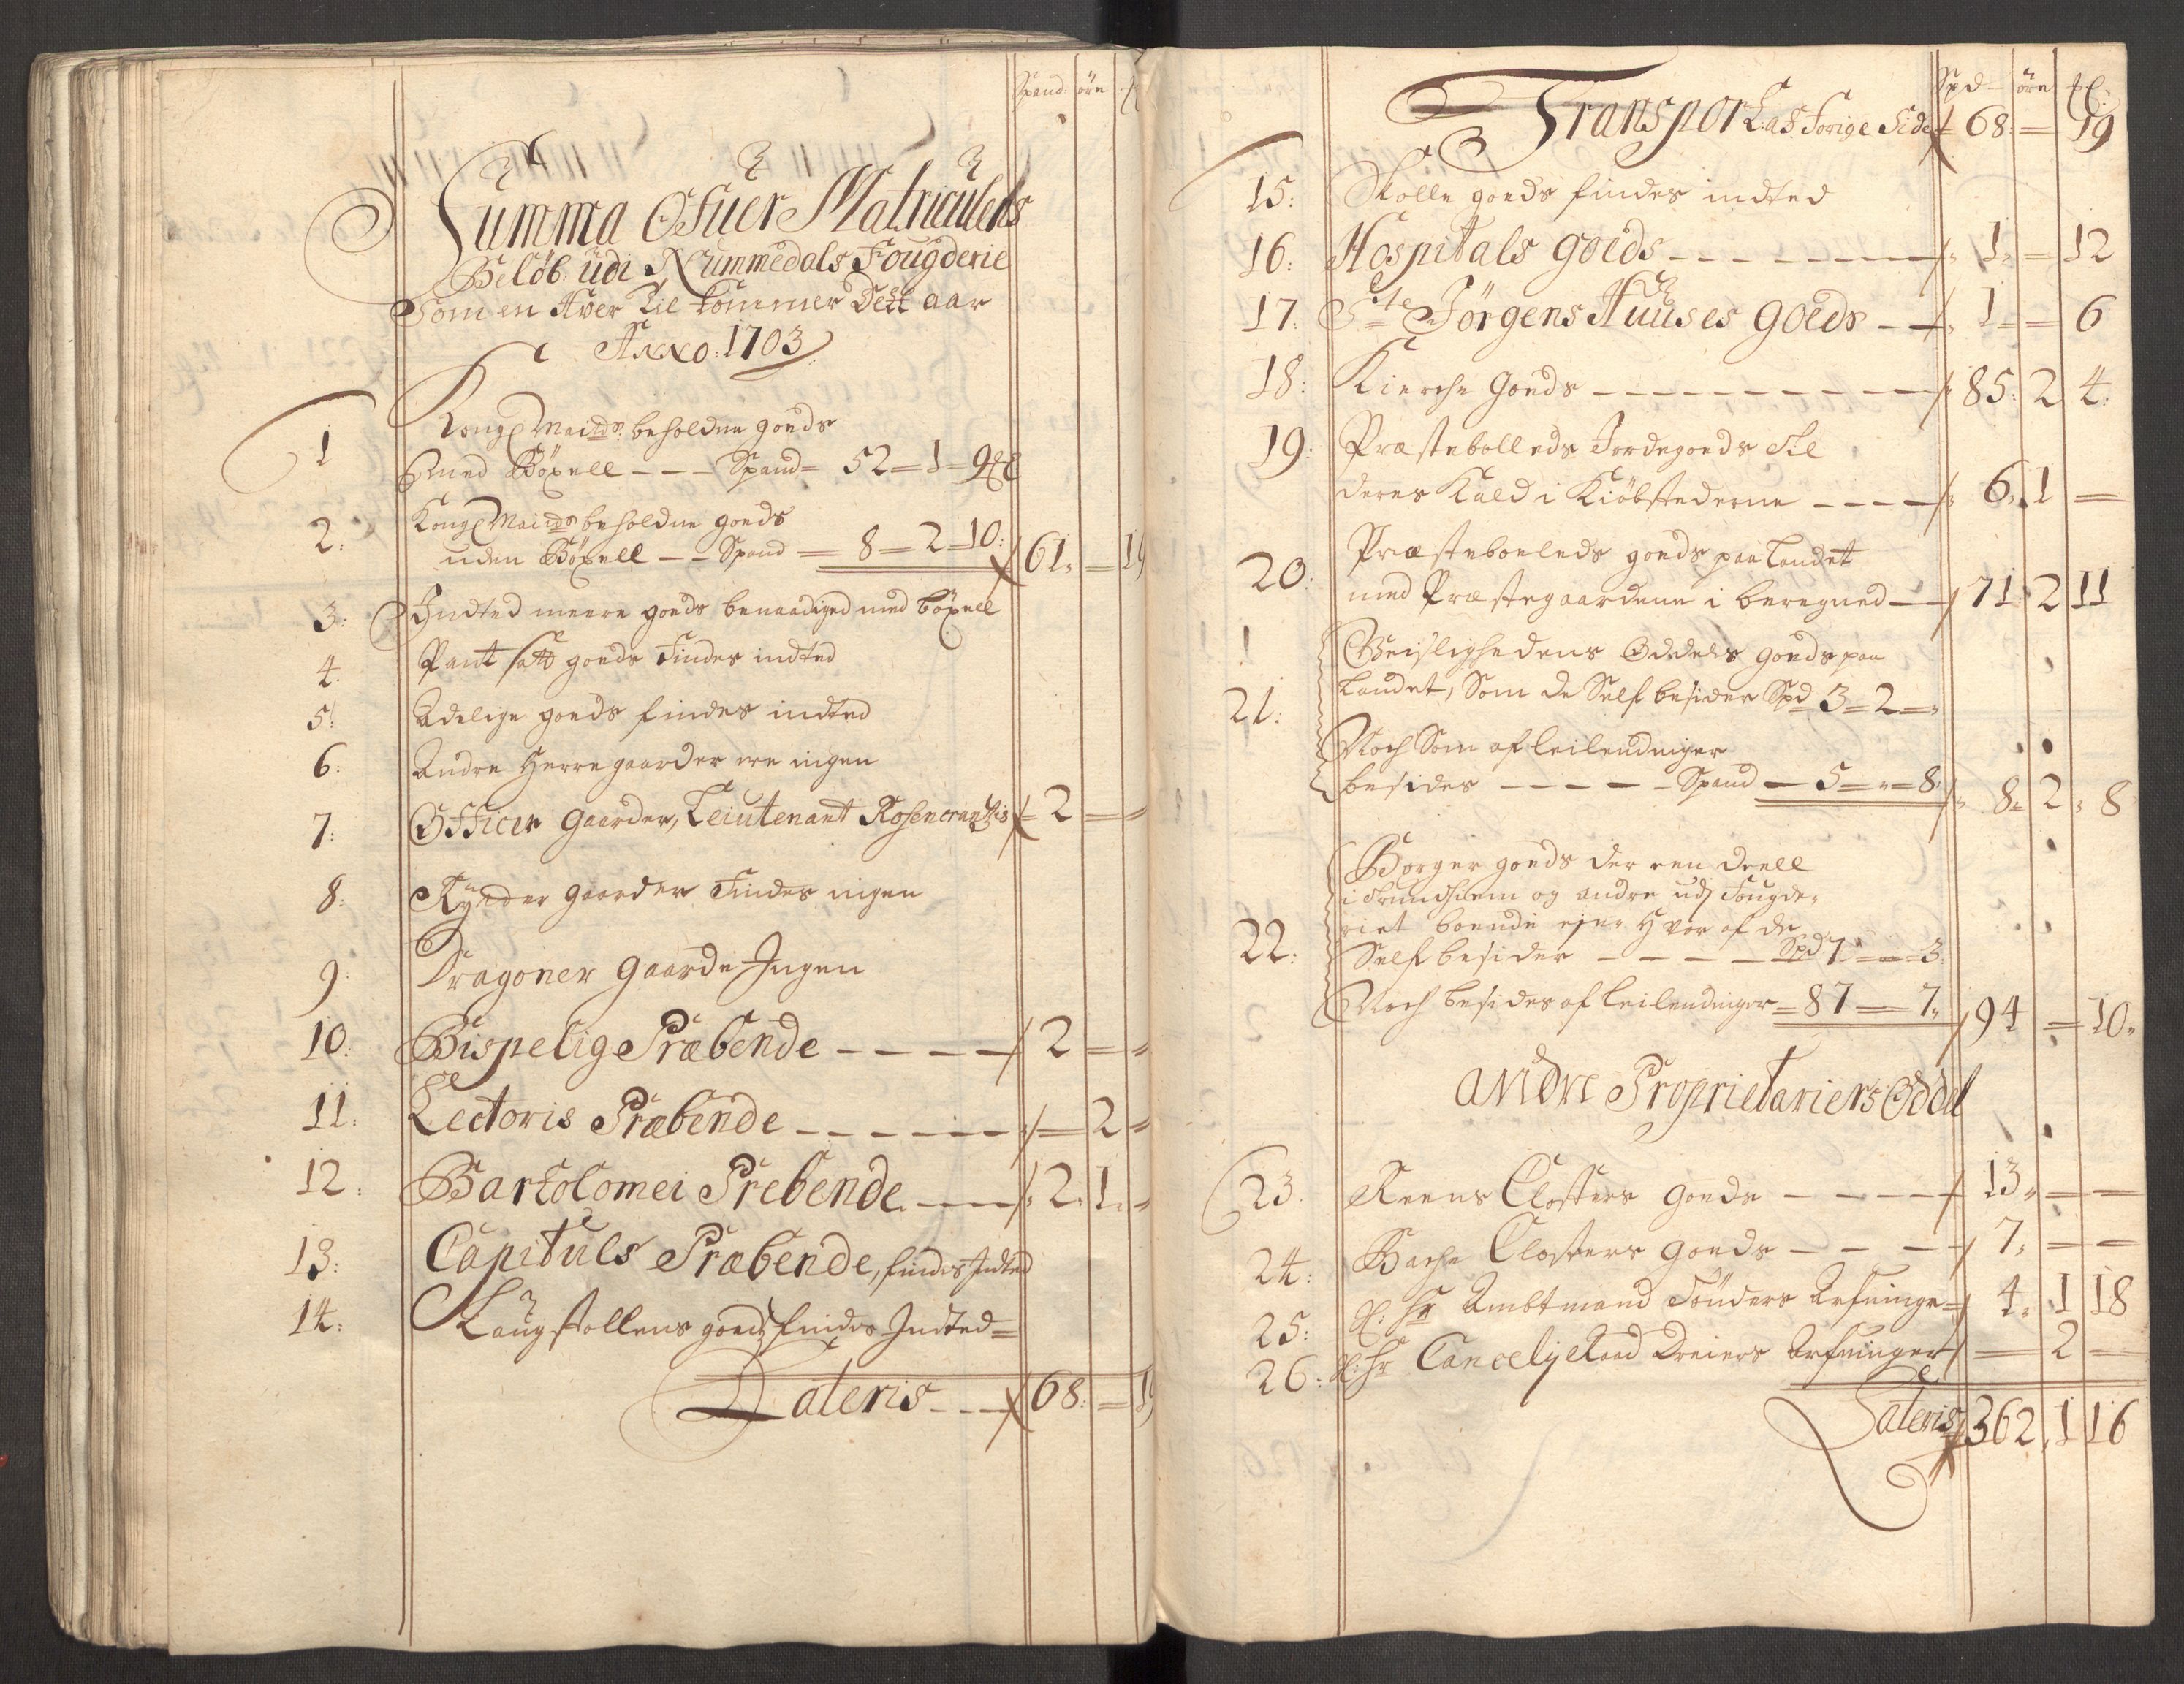 Spand öre
Summa Ofuer Matriculens
Beløb udi Nummedals Fougderie
Som en Hver til kommer dett aar
Anno: 1703
1 Kongl Mai:tds beholdne goeds
med Böxell - - - Spand = 52 = 1 = 9
2: Kongl Mai:tds beholdne goeds
uden Böxell - - Spand = 8 = 2 = 10: 61. = 19
3: Indted meere goeds benaadiged med böxell
4. Pant satt goeds Findes indted
5: Adelige goeds findes indted
6: Andre Herregaarder ere ingen
7: Officer gaarder, Leiutenant Rosencrantzis 2 = =
8: Rytter gaarder Findes ingen
9. Dragoner gaarde Ingen
10: Bispelig Præbende - - - - 2 = =
11: Lectoris Præbende - - - - - = 2 =
12: Bartolomei Prebende - - - 2. 1. =
13: Capituls Præbende, findes Indted
14: Laugstollens goeds findes Indted =
Lateris - - - 68: = 19
Spd öre
Transport af forige Side 68: = 19
15: Skolle goeds findes indted
16: Hospitals goeds - - - - - - 1. = 12
17: Ste Jørgens Huuses goeds - - 1 = = 6
18: Kierche goeds - - - - - - - - 85: 2 4.
19: Præstebolleds Jordegoeds til
deres Kald i Kiöbstederne - - - - 6. 1 =
20: Præsteboeleds goeds paa Landet
med Præstegaardene i beregned - - 71. 2 11
Geislighedens Oddels goeds paa
21: Landet, Som de Self besider Spd 3 = 2 =
Noch Som af leilendinger
besides - - - - - Spand - 5 = " = 8: 8. 2. 8
Borger goeds der een deell
i Trundhiem og andre udj Fougde-
riet boende ejer Hvor af de
22: Self besider - - - - Spd 7 = = 3.
Noch besides af leilendinger = 87 = 7. 94 = 10.
Andre Proprietariers Oddel
23. Reens Closters goeds - - - - 13. = =
24: Bache Closters goeds - - - 7. = =
25: Sl: Hr Ambtmand Tönders Arfuinge = 4. 1 18
26: Sl: Hr Cancelij Raad Dreiers Arfuinger = 2 =
Lateris 362. 1 16